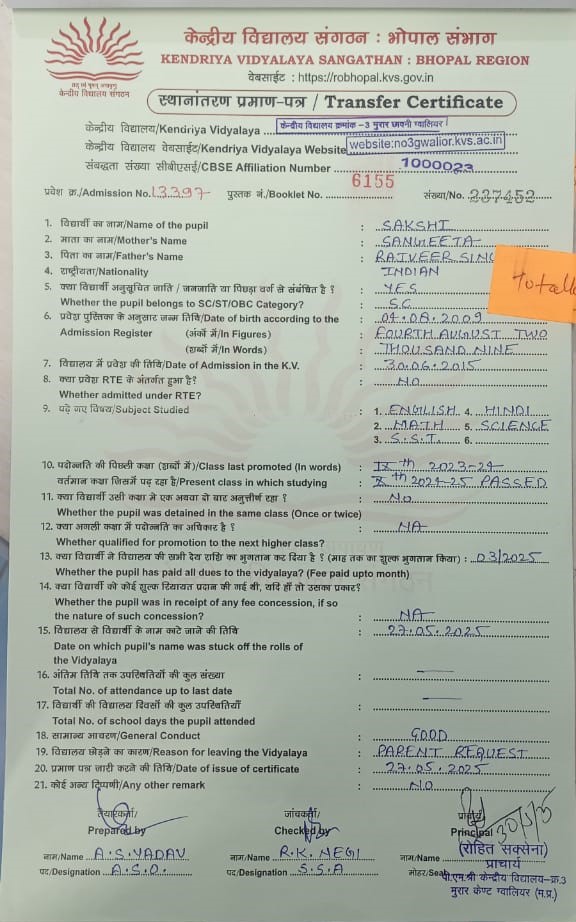 केन्द्रीय विद्यालय संगठन : भोपाल संभाग
KENDRIYA VIDYALAYA SANGATHAN : BHOPAL REGION
वेबसाईट : https://robhopal.kvs.gov.in
केन्द्रीय विद्यालय संगठन
स्थानांतरण प्रमाण-पत्र / Transfer Certificate
केन्द्रीय विद्यालय/Kendriya Vidyalaya केन्द्रीय विद्यालय क्रमांक -3 मुरार छावनी ग्वालियर
केन्द्रीय विद्यालय वेबसाईट/Kendriya Vidyalaya Website website:no3gwalior.kvs.ac.in
संबद्धता संख्या सीबीएसई/CBSE Affiliation Number 1000023
प्रवेश क्र./Admission No. 13397 पुस्तक नं./Booklet No. 6155 संख्या/No. 237452
1. विद्यार्थी का नाम/Name of the pupil : SAKSHI
2. माता का नाम/Mother's Name : SANGEETA
3. पिता का नाम/Father's Name : RAJVEER SING
4. राष्ट्रीयता/Nationality : INDIAN
Totall
5. क्या विद्यार्थी अनुसूचित जाति / जनजाति या पिछड़ा वर्ग से संबंधित है ? : YES
Whether the pupil belongs to SC/ST/OBC Category? : S.C
6. प्रवेश पुस्तिका के अनुसार जन्म तिथि/Date of birth according to the : 04.08.2009
Admission Register (अंकों में/In Figures) : FOURTH AUGUST TWO
(शब्दों में/In Words) : THOUSAND NINE
7. विद्यालय में प्रवेश की तिथि/Date of Admission in the K.V. : 30.06.2015
8. क्या प्रवेश RTE के अंतर्गत हुआ है? : NO
Whether admitted under RTE?
9. पढ़े गए विषय/Subject Studied : 1. ENGLISH 4. HINDI
2. MATH 5. SCIENCE
3. S.S.T. 6.
10. पदोन्नति की पिछली कक्षा (शब्दों में)/Class last promoted (In words) : IXth 2023-24
वर्तमान कक्षा जिसमें पढ़ रहा है/Present class in which studying : Xth 2024-25 PASSED
11. क्या विद्यार्थी उसी कक्षा में एक अथवा दो बार अनुत्तीर्ण रहा ? : NO
Whether the pupil was detained in the same class (Once or twice)
12. क्या अगली कक्षा में पदोन्नति का अधिकार है ? : NA
Whether qualified for promotion to the next higher class?
13. क्या विद्यार्थी ने विद्यालय की सभी देय राशि का भुगतान कर दिया है ? (माह तक का शुल्क भुगतान किया) : 03/2025
Whether the pupil has paid all dues to the vidyalaya? (Fee paid upto month)
14. क्या विद्यार्थी को कोई शुल्क रियायत प्रदान की गई थी, यदि हाँ तो उसका प्रकार?
Whether the pupil was in receipt of any fee concession, if so
the nature of such concession? : NA
15. विद्यालय से विद्यार्थी के नाम काटे जाने की तिथि : 27.05.2025
Date on which pupil's name was stuck off the rolls of
the Vidyalaya
16. अंतिम तिथि तक उपस्थितियों की कुल संख्या : —
Total No. of attendance up to last date
17. विद्यार्थी की विद्यालय दिवसों की कुल उपस्थितियाँ : —
Total No. of school days the pupil attended
18. सामान्य आचरण/General Conduct : GOOD
19. विद्यालय छोड़ने का कारण/Reason for leaving the Vidyalaya : PARENT REQUEST
20. प्रमाण पत्र जारी करने की तिथि/Date of issue of certificate : 27.05.2025
21. कोई अन्य टिप्पणी/Any other remark : NO
तैयारकर्ता/ जांचकर्ता/ प्राचार्य/
Prepared by Checked by Principal 30/5/25
(रोहित सक्सेना)
नाम/Name A.S.YADAV नाम/Name R.K. NEGI नाम/Name प्राचार्य
पद/Designation A.S.O. पद/Designation S.S.A मोहर/Seal पी.एम.श्री केन्द्रीय विद्यालय-क्र.3
मुरार केण्ट ग्वालियर (म.प्र.)